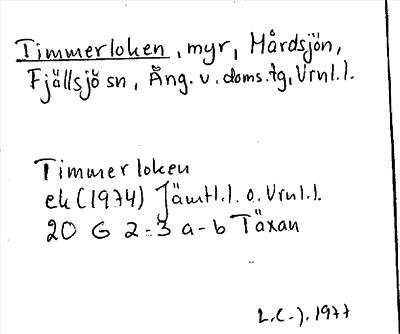 Timmerloken, myr, Hårdsjön,
Fjällsjö sn, Ång. v. doms.tg, Vrnl.l.
Timmerloken
ek (1974) Jämtl.l. o. Vrnl.l.
20 G 2-3 a-b Täxan
L.C-j. 1977